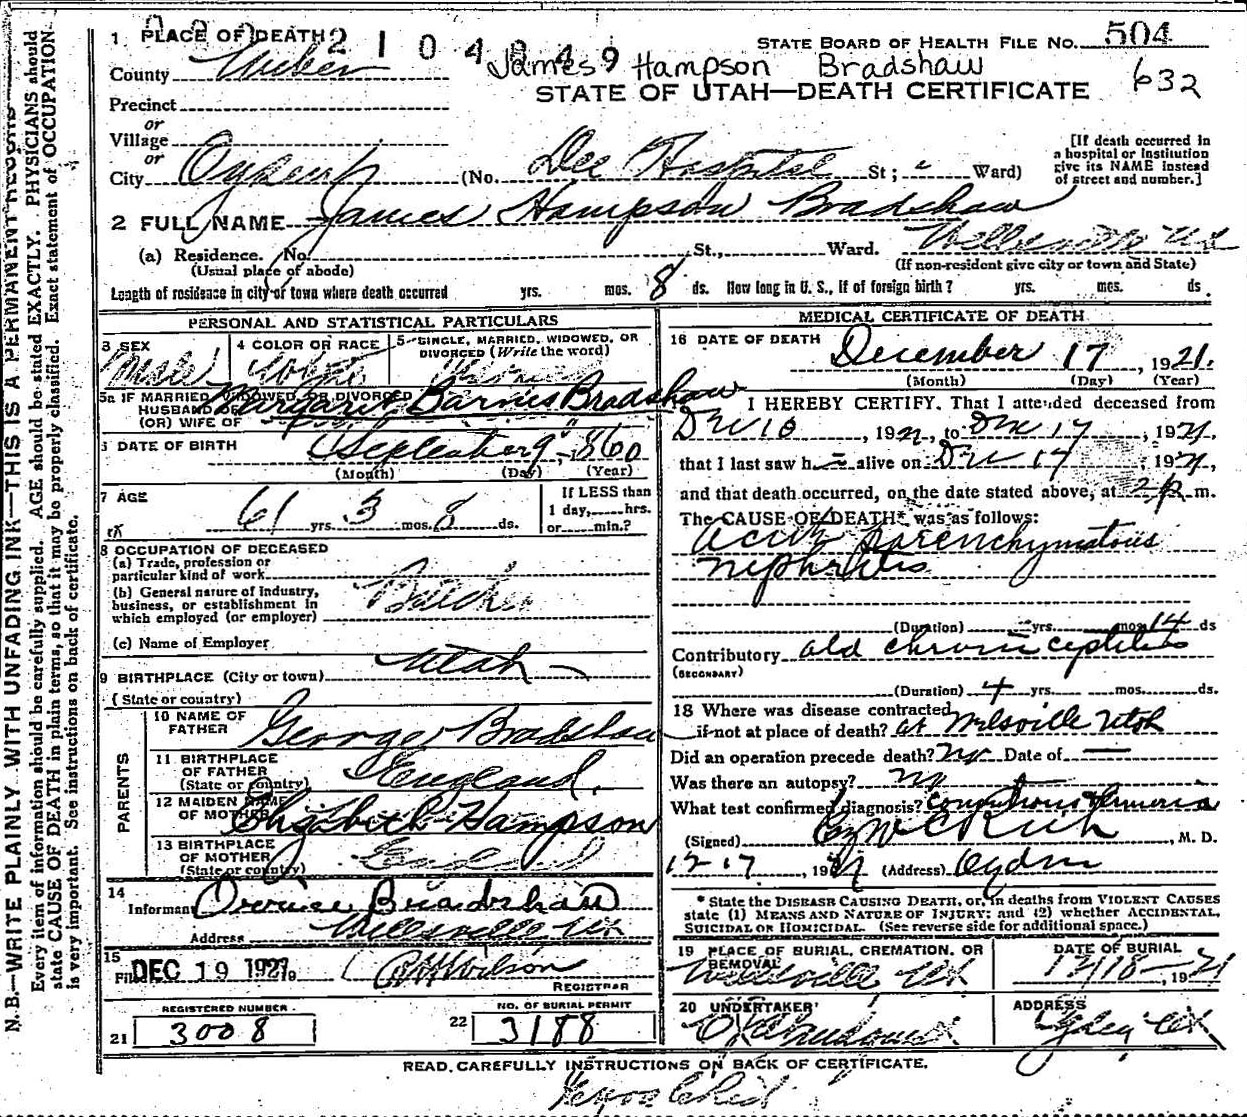 N.B.—WRITE PLAINLY WITH UNFADING INK—THIS IS A PERMANENT RECORD
Every item of information should be carefully supplied. AGE should be stated EXACTLY. PHYSICIANS should
state CAUSE OF DEATH in plain terms, so that it may be properly classified. Exact statement of OCCUPATION
is very important. See instructions on back of certificate.
1 PLACE OF DEATH 2104849
STATE BOARD OF HEALTH FILE No. 504
County Weber
James Hampson Bradshaw
632
STATE OF UTAH—DEATH CERTIFICATE
Precinct
or
Village
or
City Ogden (No. Dee Hospital St; Ward)
[If death occurred in
a hospital or institution
give its NAME instead
of street and number.]
2 FULL NAME James Hampson Bradshaw
(a) Residence. No. St., Ward. Wellsville Ut
(Usual place of abode)
(If non-resident give city or town and State)
Length of residence in city or town where death occurred yrs. mos. 8 ds. How long in U. S., if of foreign birth? yrs. mos. ds.
PERSONAL AND STATISTICAL PARTICULARS
3 SEX Male
4 COLOR OR RACE White
5 SINGLE, MARRIED, WIDOWED, OR
DIVORCED (Write the word)
5a IF MARRIED, WIDOWED, OR DIVORCED
HUSBAND OF Margaret Barnes Bradshaw
(OR) WIFE OF
6 DATE OF BIRTH September 9, 1860
(Month) (Day) (Year)
7 AGE 61 yrs. 3 mos. 8 ds.
If LESS than
1 day, hrs.
or min.?
8 OCCUPATION OF DECEASED
(a) Trade, profession or
particular kind of work
(b) General nature of industry,
business, or establishment in
which employed (or employer) Butcher
(c) Name of Employer
9 BIRTHPLACE (City or town) Utah
(State or country)
PARENTS
10 NAME OF
FATHER George Bradshaw
11 BIRTHPLACE
OF FATHER England.
(State or country)
12 MAIDEN NAME
OF MOTHER Elizabeth Hampson
13 BIRTHPLACE
OF MOTHER England
(State or country)
14
Informant Bradshaw
Address Wellsville Ut
15
Filed DEC 19 1921 Wilson
REGISTRAR
REGISTERED NUMBER
21 3008
NO. OF BURIAL PERMIT
22 3188
MEDICAL CERTIFICATE OF DEATH
16 DATE OF DEATH December 17, 1921.
(Month) (Day) (Year)
I HEREBY CERTIFY, That I attended deceased from
Dec 10, 1921, to Dec 17, 1921,
that I last saw h alive on Dec 17, 1921,
and that death occurred, on the date stated above, at 2 P.m.
The CAUSE OF DEATH* was as follows:
Acute parenchymatous
nephritis
(Duration) yrs. mos. 14 ds
Contributory old chronic
(SECONDARY)
(Duration) 4 yrs. mos. ds.
18 Where was disease contracted
if not at place of death? at Utah
Did an operation precede death? no Date of —
Was there an autopsy? no
What test confirmed diagnosis?
(Signed) Rich, M. D.
12 17, 1921 (Address) Ogden
* State the DISEASE CAUSING DEATH, or, in deaths from VIOLENT CAUSES
state (1) MEANS AND NATURE OF INJURY; and (2) whether ACCIDENTAL,
SUICIDAL OR HOMICIDAL. (See reverse side for additional space.)
19 PLACE OF BURIAL, CREMATION, OR
REMOVAL Wellsville Ut
DATE OF BURIAL
12/18—, 1921
20 UNDERTAKER
ADDRESS
Ogden Ut
READ CAREFULLY INSTRUCTIONS ON BACK OF CERTIFICATE.